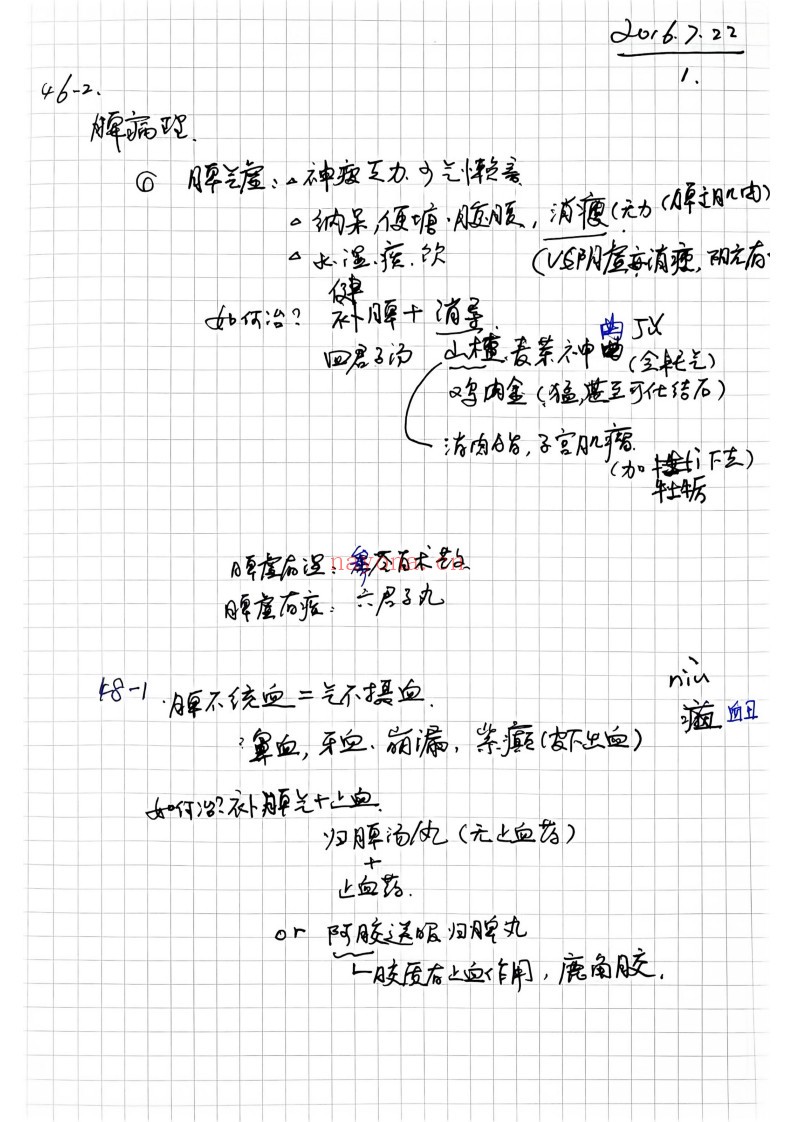 2016.7.22
1.
46-2.
脾病理.
⑥ 脾气虚: △神疲乏力.少气懒言
△纳呆,便溏.脘腹, 消瘦(无力(脾主肌肉)
△水湿.痰.饮 (VS阴虚亦消瘦,阴亢有
如何治? 健补脾+消导
四君子汤 山楂麦芽神曲 曲 5X (会耗气)
鸡内金(猛,甚至可化结石)
消肉脂,子宫肌瘤.
(加 下去)
牡蛎
脾虚有湿:参苓白术散
脾虚有痰:六君子丸
48-1 脾不统血=气不摄血. niù
衄
鼻血,牙血.崩漏,紫癜(皮下出血)
如何治?补脾气+止血.
归脾汤/丸(无止血药)
+
止血药.
or 阿胶送服归脾丸
胶质有止血作用,鹿角胶.
nayona.cn